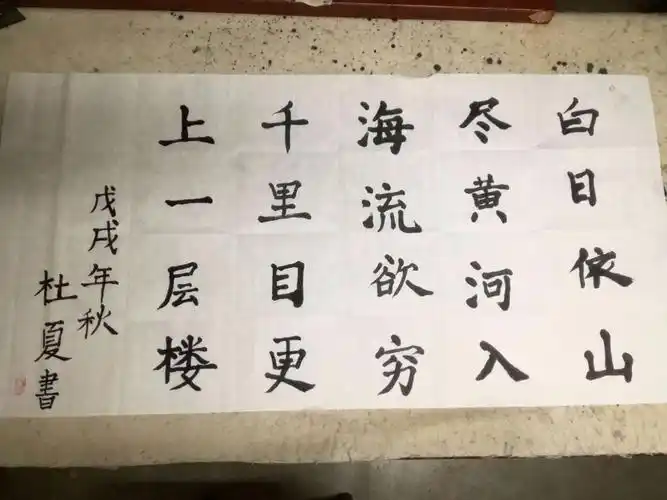 白日依山
尽黄河入
海流欲穷
千里目更
上一层楼
戊戌年秋
杜夏書